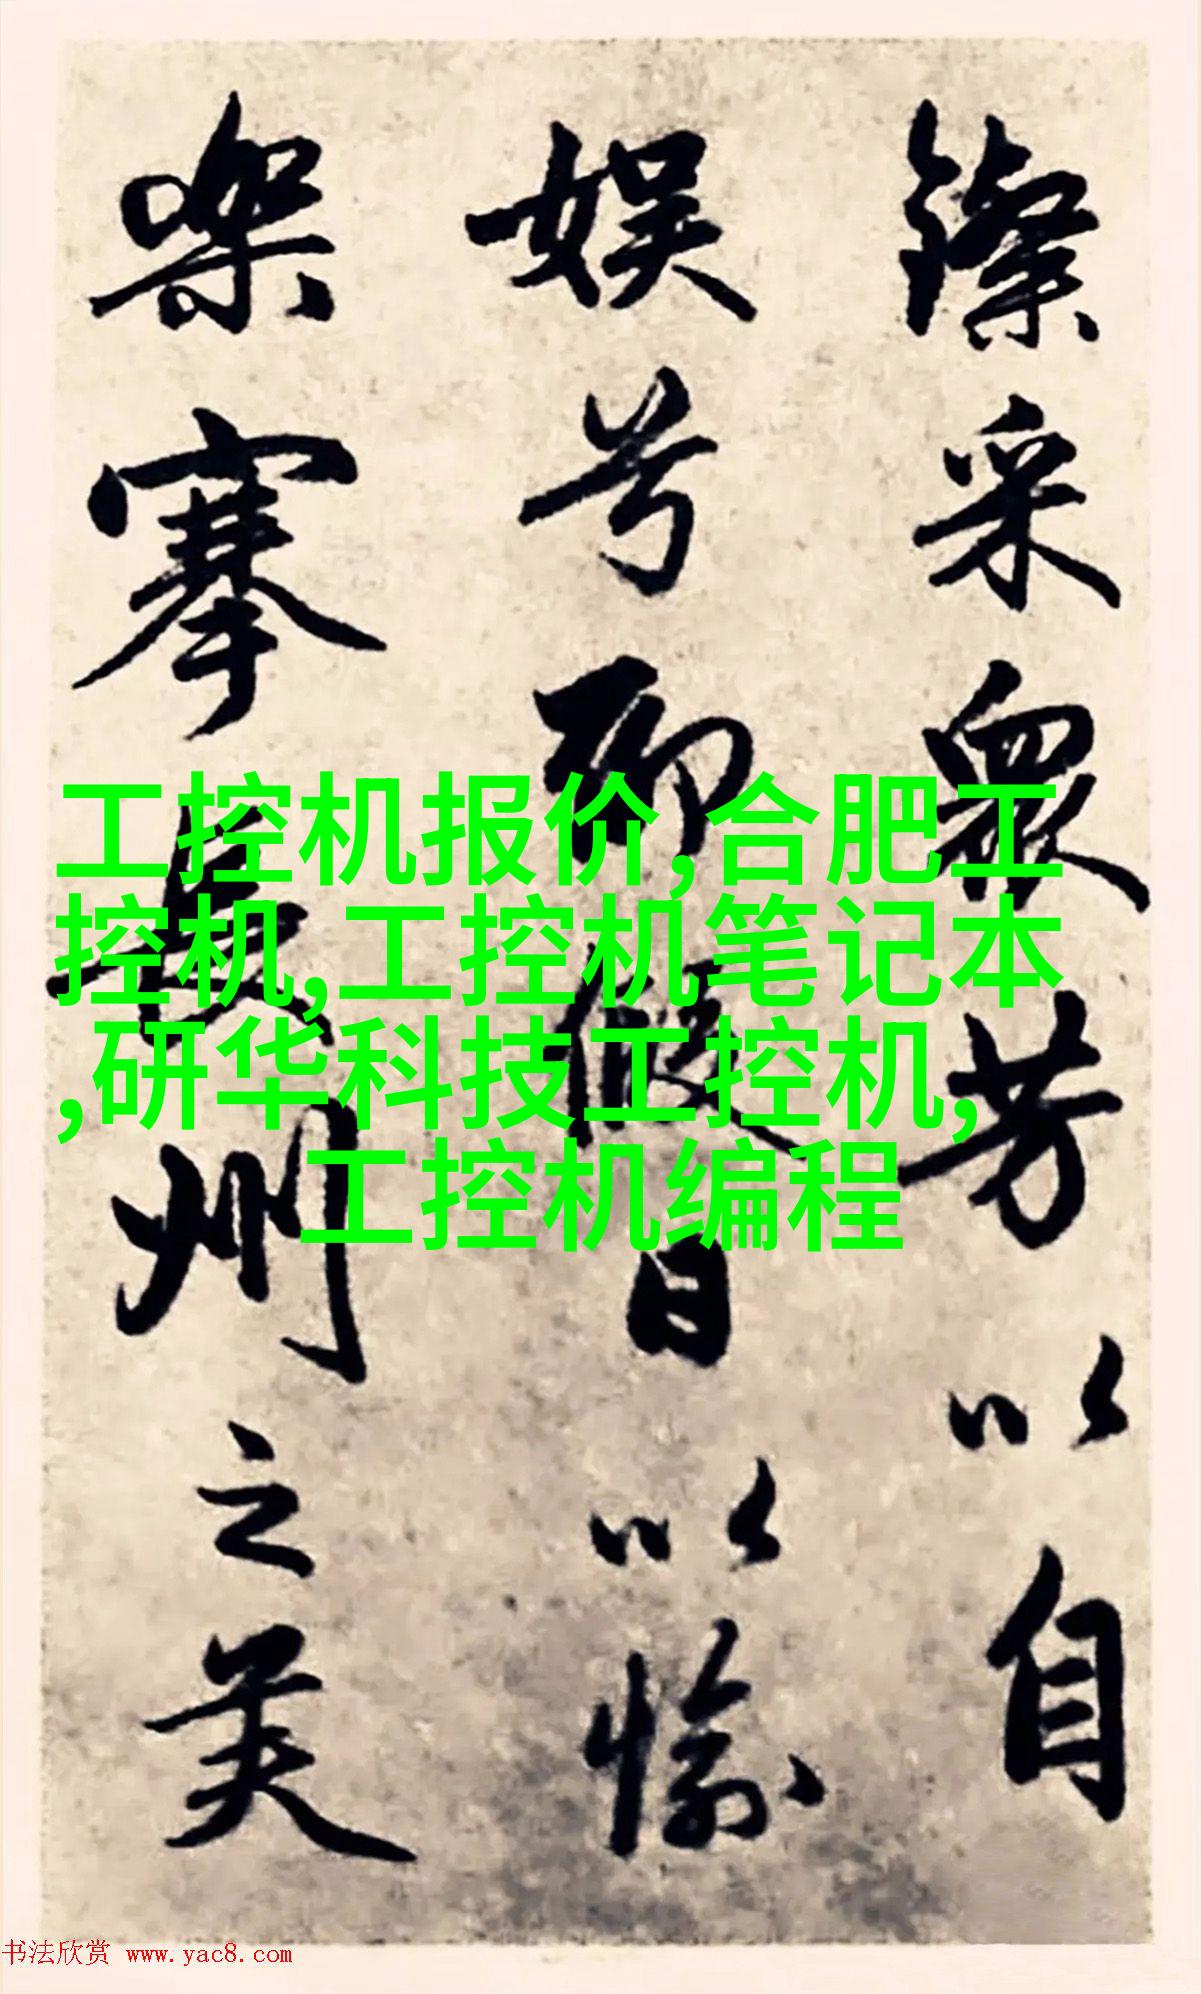 鏼采衆芳以自
娱兮聊假日以愉
樂搴長州之美
工控机报价,合肥工
控机,工控机笔记本
,研华科技工控机,
工控机编程
书法欣赏 www.yac8.com